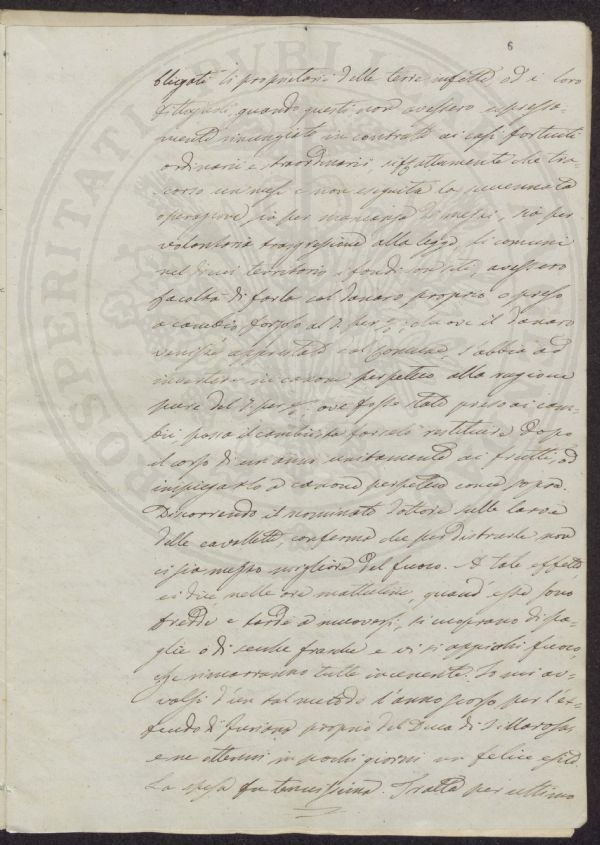 6
bligati li proprietarii delle terre infette, od i loro
fittajuoli, quando questi non avessero espressa-
mente rinunziato in contratto ai casi fortuiti
ordinarii e straordinarii, siffattamente che tra-
corso un mese e non eseguita la accennata
operazione, sia per mancanza di mezzi, sia per
volontaria trasgressione alla legge, li comuni
nel di cui territorio i fondi son siti, avessero
facoltà di farla col danaro proprio o preso
a cambio forzoso al 7 per %, ed ove il danaro
venisse apprestato dal Comune, s'abbia ad
invertere in canone perpetuo alla ragione
pure del 7 per %, ove fosse stato preso ai cam-
bii possa il cambista farselo restituire dopo
il corso di un anno unitamente ai frutti, od
impiegarlo a canone perpetuo come sopra.
Discorrendo il nominato dottore sulle larve
delle cavallette, conferma che per distrurle non
ci sia mezzo migliore del fuoco. A tale effetto,
ei dice, nelle ore mattutine, quand'esse sono
fredde e tarde a muoversi, si cuoprano di pa-
glia o di secche frasche e vi si appicchi fuoco,
che rimarranno tutte incenerite. Io mi av-
valsi d'un tal metodo l'anno scorso per l'ex
feudo di proprio del Duca di
e ne ottenni in pochi giorni un felice esito.
La spesa fu tenuissima. Tratta per ultimo
PROSPERITATI PUBLICAE